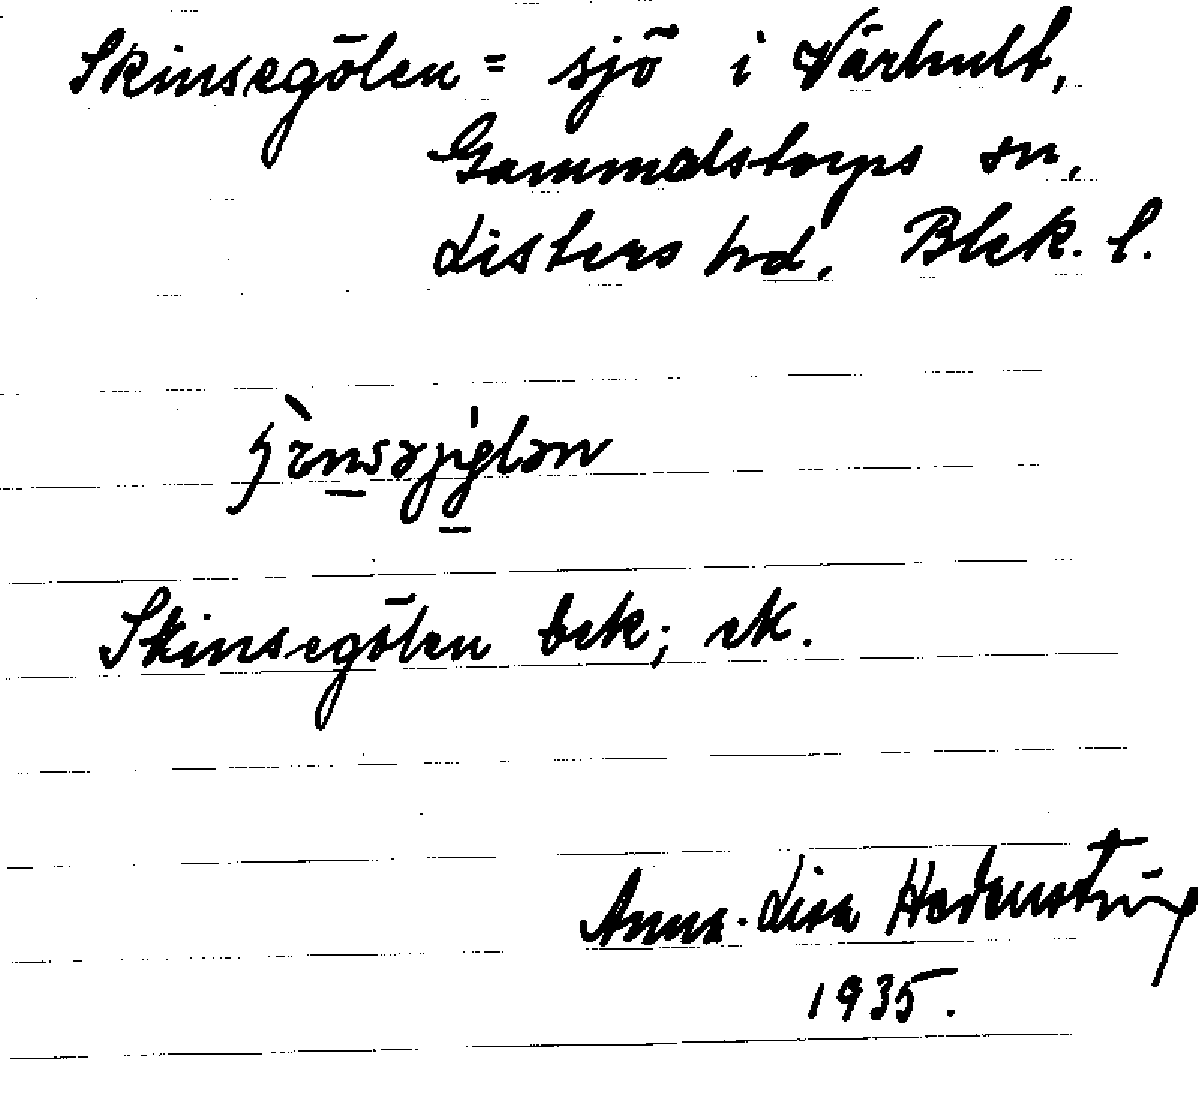 Skinsegölen = sjö i Vårhult,
Gammalstorps sn,
Listers hd, Blek. l.
Skinsegölen bek; ek.
Anna-Lisa Hedenström
1935.